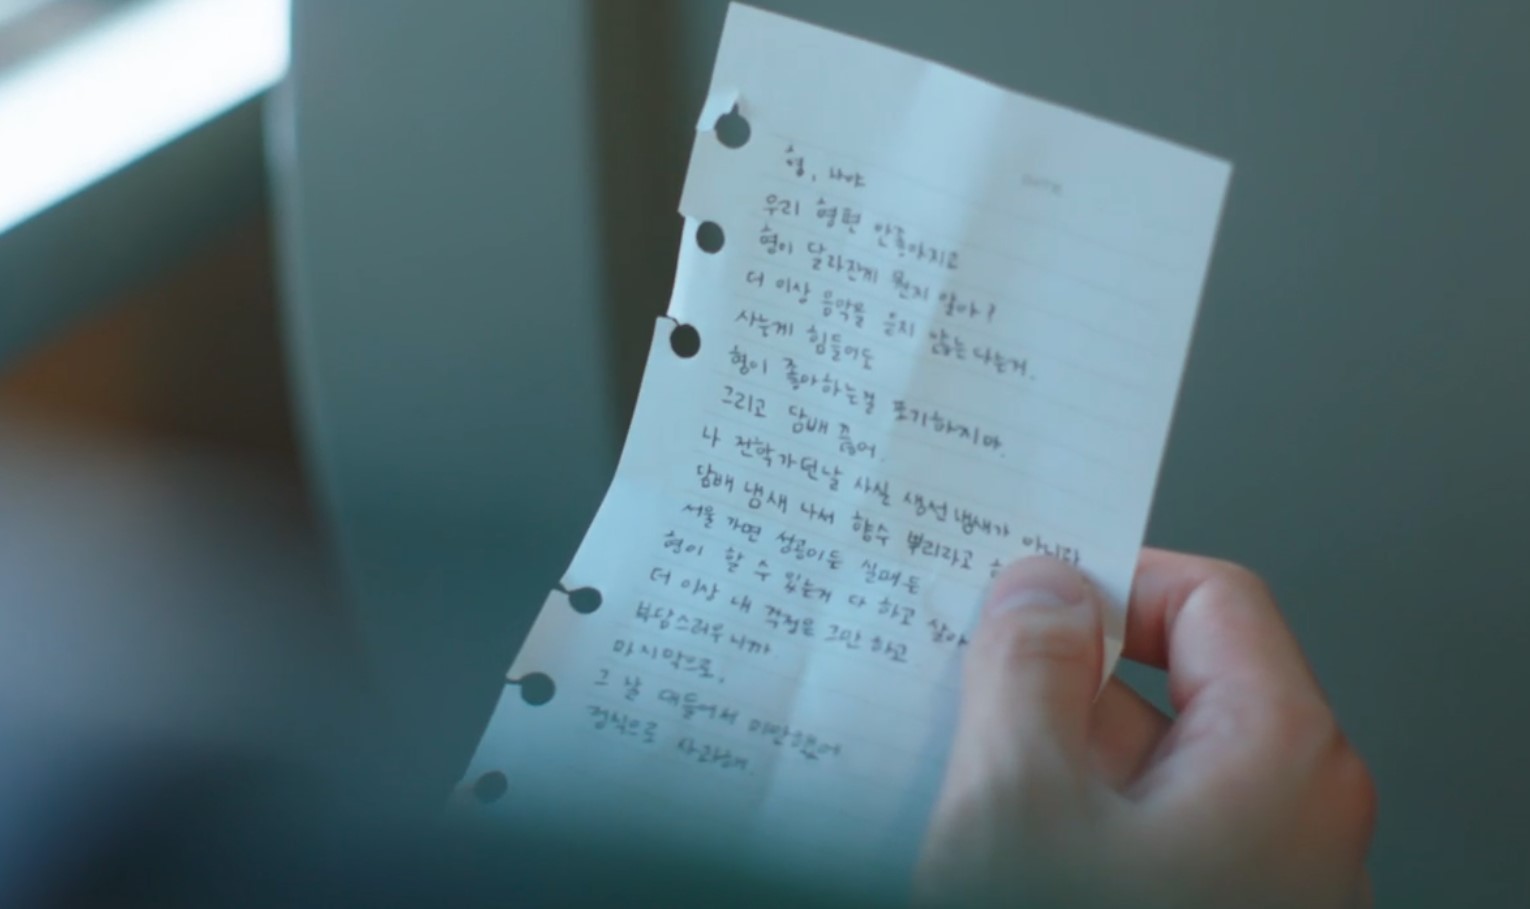 형, 나야
우리 형편 안좋아지고
형이 달라진게 뭔지 알아?
더 이상 음악을 듣지 않는다는거.
사는게 힘들어도
형이 좋아하는걸 포기하지마.
그리고 담배 끊어.
나 전학가던날 사실 생선냄새가 아니라
담배 냄새 나서 향수 뿌리라고
서울 가면 성공이든 실패든
형이 할 수 있는거 다 하고 살아
더 이상 내 걱정은 그만 하고
부담스러우니까
마지막으로,
그 날 대들어서 미안했어
정식으로 사과해.